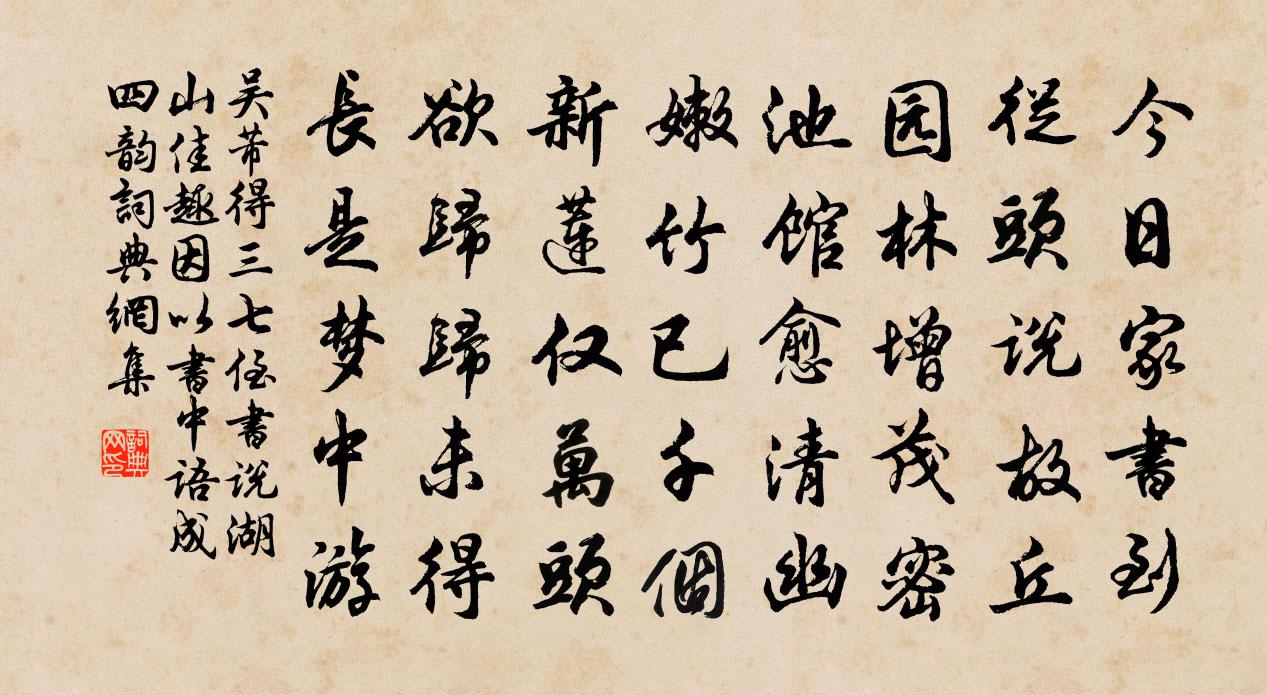 今日家書到
從頭说故丘
园林增茂密
池馆愈清幽
嫩竹已千個
新莲仅萬頭
欲歸歸未得
長是梦中游
吴芾得三七侄書说湖
山佳趣因以書中语成
四韵詞典網集
詞典网印